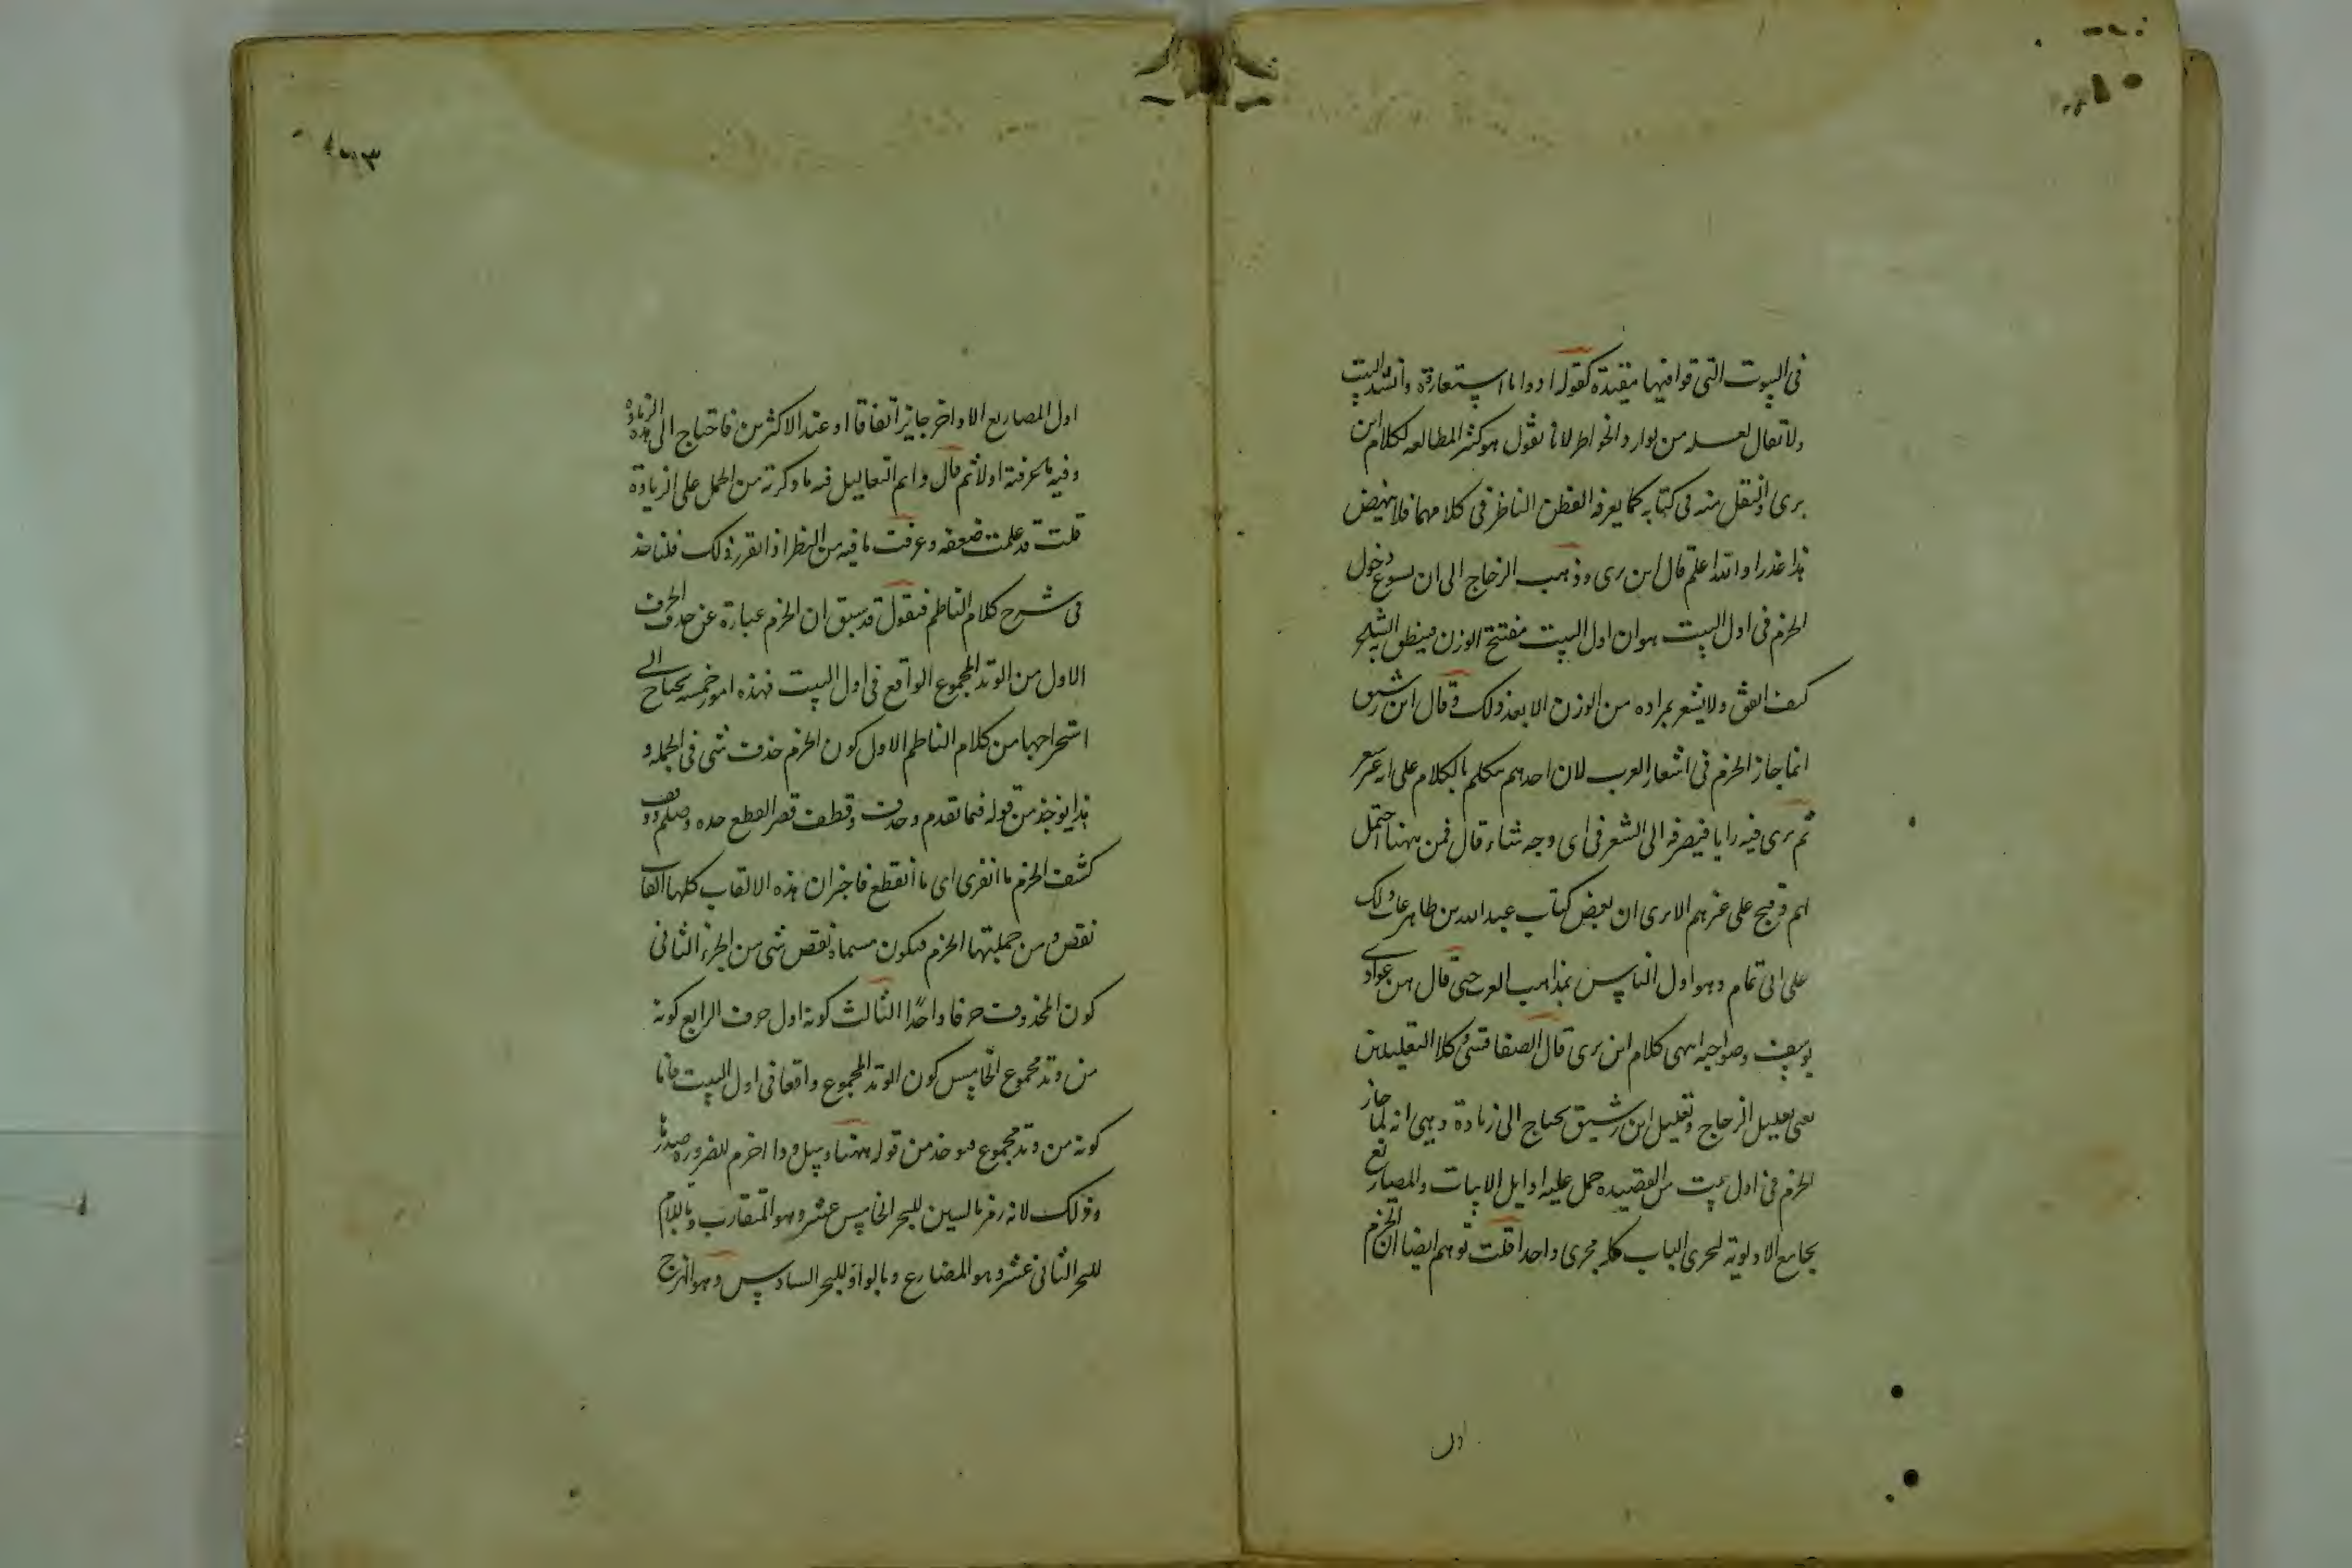 في البيوت التي قوافيها مقيدة كقوله ادوا ما استعارة وانشد البيت
ولا تقال لعله من توارد الخواطر لانا نقول هو كثير المطالعه لكلام ابن
بري والنقل منه في كتابه كما يعرفه الفطن الناظر في كلامهما فلا ينهض
هذا عذرا والله اعلم قال ابن بري وذهب الزجاج الى ان يسوغ دخول
الخرم في اول البيت هو ان اول البيت مفتتح الوزن فينطق به الشاعر
كيف اتفق ولا يشعر بمراده من الوزن الا بعد ذلك وقال ابن رشيق
انما جاز الخرم في اشعار العرب لان احدهم يتكلم بالكلام على انه غير شعر
ثم يرى فيه رايا فيصرفه الى الشعر في اي وجه شاء قال فمن ههنا احتمل
لهم وقبح على غيرهم الا يرى ان بعض كتاب عبد الله بن طاهر عاب ذلك
على ابي تمام وهو اول الناس بمذاهب العرب حتى قال هن عوادي
يوسف وصواحبه انتهى كلام ابن بري قال الصفاقسي وكلا التعليلين
يعني تعليل الزجاج وتعليل ابن رشيق يحتاج الى زيادة وهي انه لما جاز
الخرم في اول بيت من القصيده حمل عليه اوايل الابيات والمصاريع
بجامع الاولوية ليجرى الباب كله مجرى واحدا قلت توهم ايضا ان الخرم
اول
اول المصاريع الاواخر جايز اتفاقا او عند الاكثرين فاحتاج الى هذه الزيادة
وفيه ما عرفته اولا ثم قال واتم التعاليل فيه ما ذكرته من الحمل على الزيادة
قلت قد علمت ضعفه وعرفت ما فيه من النظر اذا تقرر ذلك فلناخذ
في شرح كلام الناظم فنقول قد سبق ان الخرم عبارة عن حذف الحرف
الاول من الوتد المجموع الواقع في اول البيت فهذه امور خمسه يحتاج الى
استخراجها من كلام الناظم الاول كون الخرم حذف شي في الجملة و
هذا يوخذ من قوله فيما تقدم وحذف وقطف قصر القطع حذه وصلم ووقف
كشف الخرم ما انفرى اي ما انقطع فاخبر ان هذه الالقاب كلها القاب
نقص ومن جملتها الخرم فيكون مسماه نقص شي من الجزء الثاني
كون المحذوف حرفا واحدا الثالث كونه اول حرف الرابع كونه
من وتد مجموع الخامس كون الوتد المجموع واقعا في اول البيت فاما
كونه من وتد مجموع فيوخذ من قوله ههنا وسل ودا اخرم للضرورة صدرها
وذلك لانه رمز بالسين للبحر الخامس عشر وهو المتقارب وباللام
للبحر الثاني عشر وهو المضارع وبالواو للبحر السادس وهو الهزج